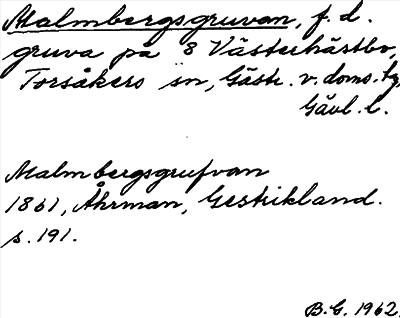 Malmbergsgruvan, f. d.
gruva på 8 Västerhästbo,
Torsåkers sn, Gästr. v. doms. tg,
Gävl. l.
Malmbergsgrufvan
1861, Åhrman, Gestrikland.
s. 191.
B.G. 1962.